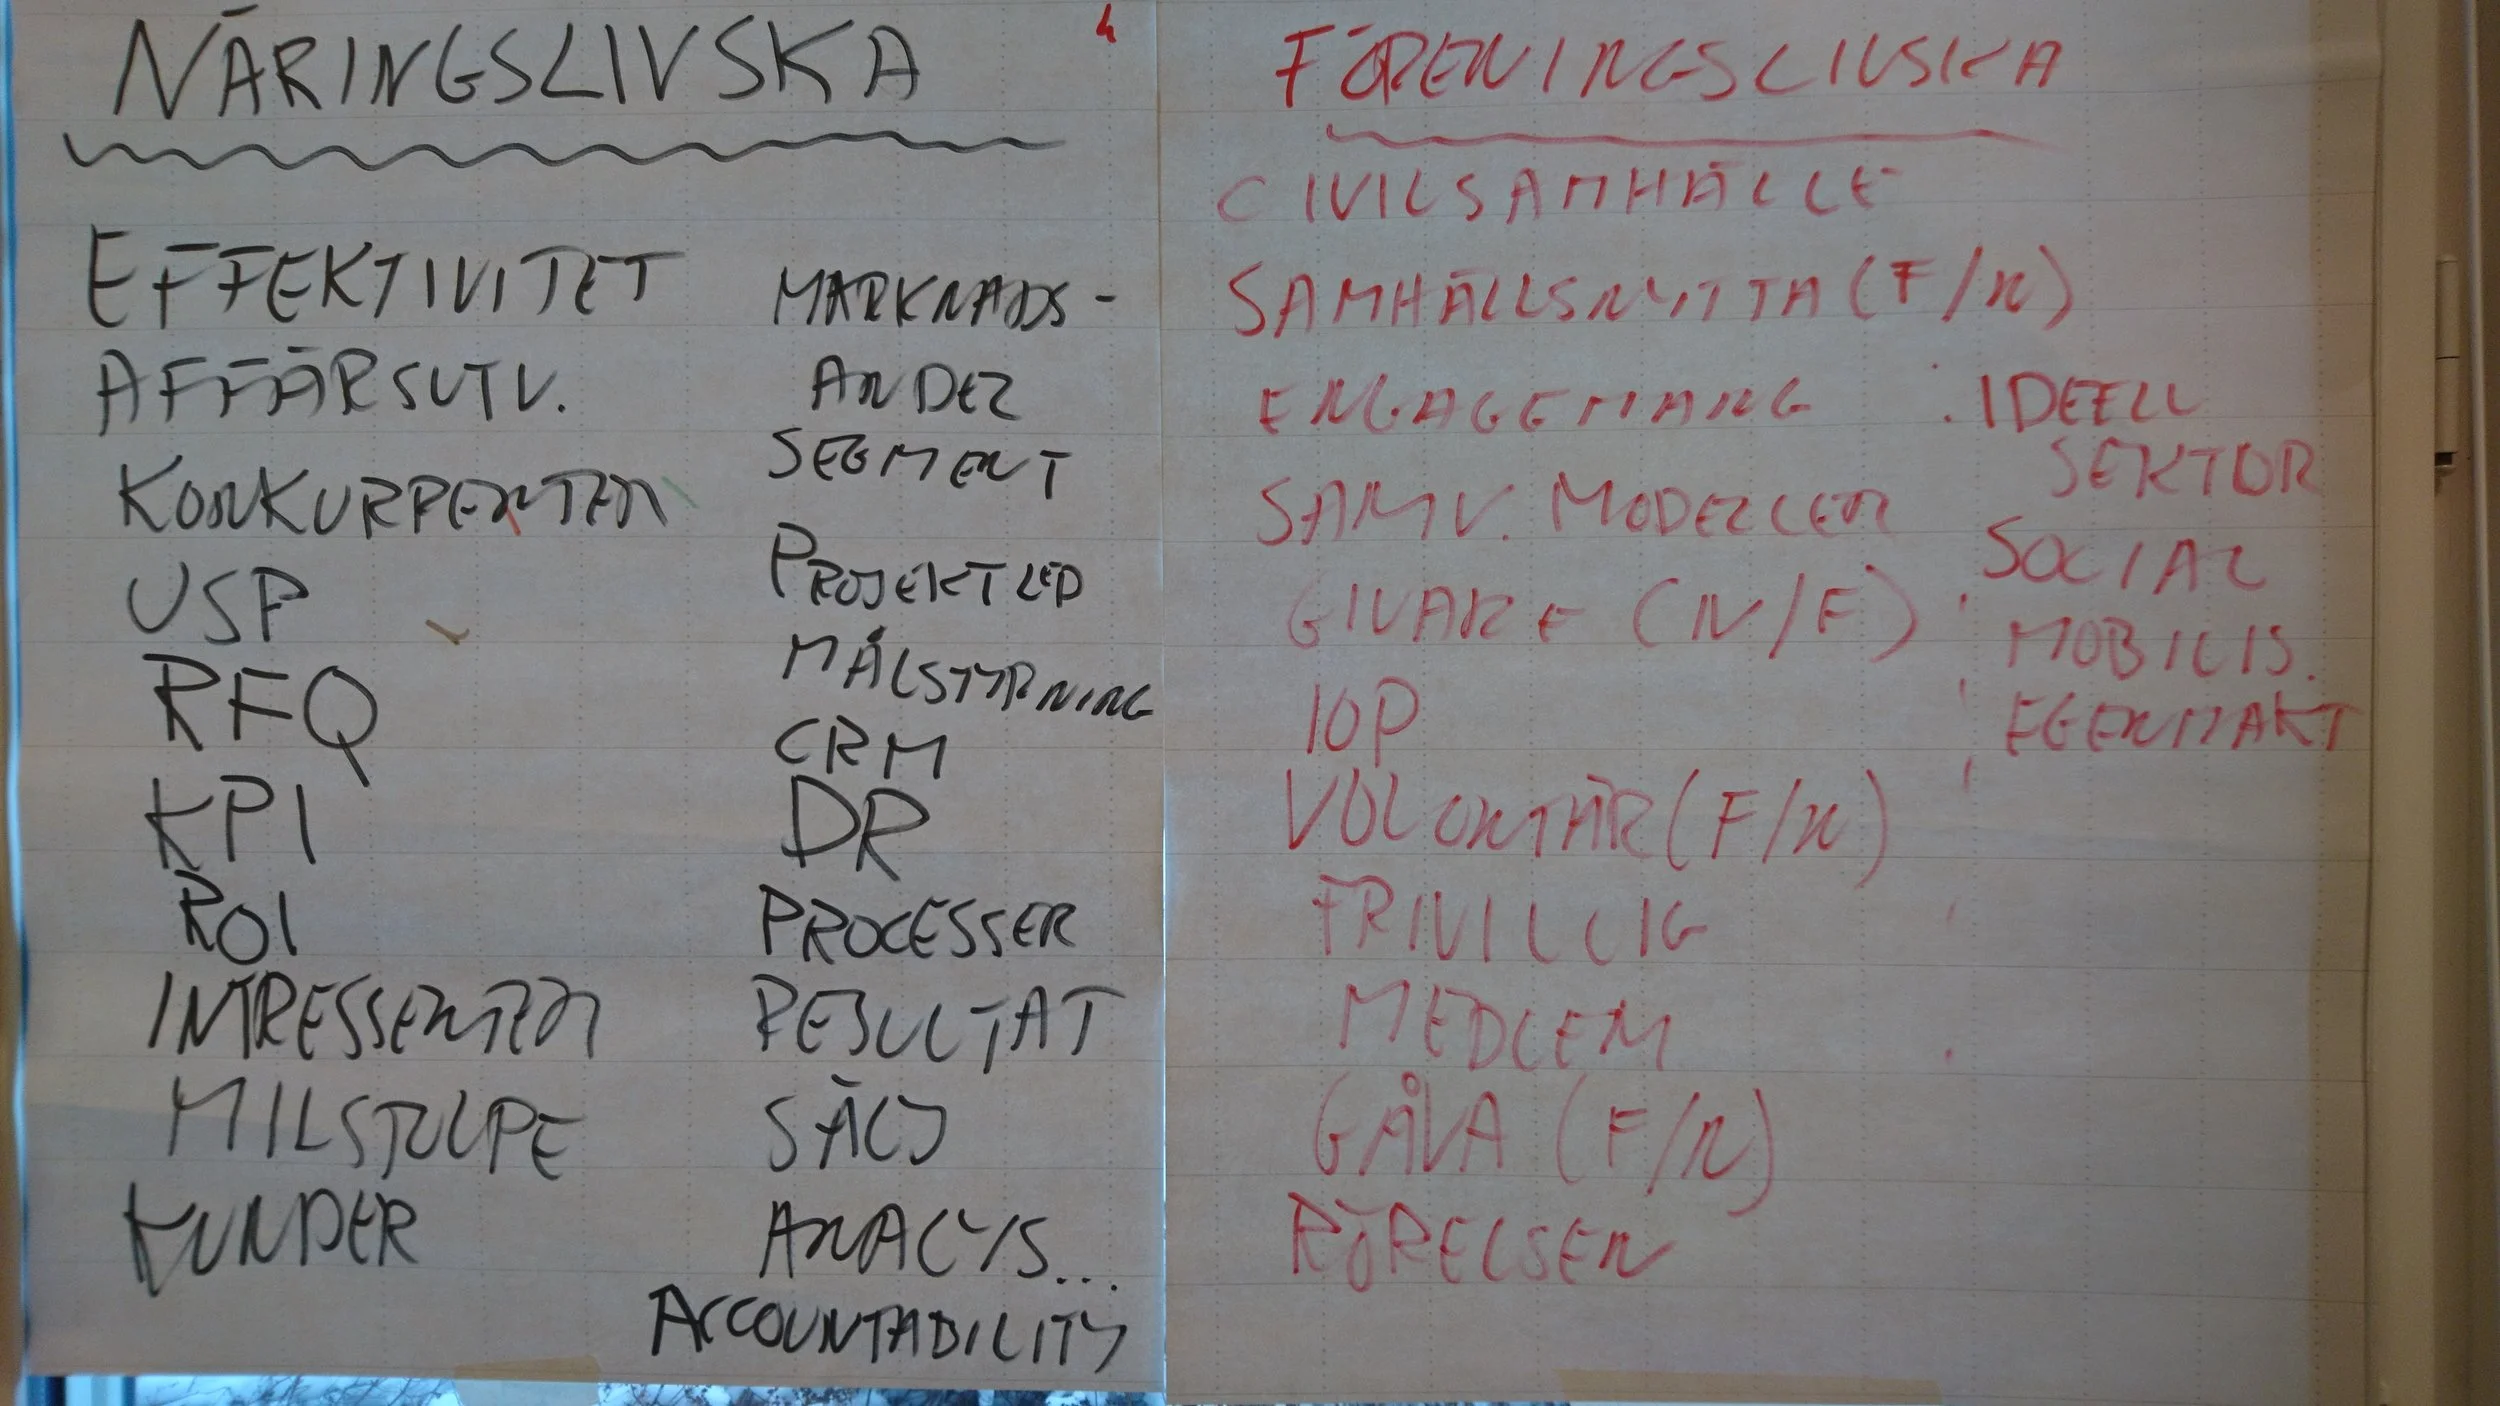 NÄRINGSLIVSKA
EFFEKTIVITET
AFFÄRSUTV.
KONKURRENTER
USP
RFQ
KPI
ROI
INTRESSENTER
MILSTOLPE
KUNDER
MARKNADS-
ANDEL
SEGMENT
PROJEKTLED
MÅLSTYRNING
CRM
DR
PROCESSER
RESULTAT
SÄLJ
ANALYS...
ACCOUNTABILITY
FÖRENINGSLIVSKA
CIVILSAMHÄLLE
SAMHÄLLSNYTTA (F/N)
ENGAGEMANG
SAMV. MODELLER
GIVARE (N/F)
IOP
VOLONTÄR (F/N)
FRIVILLIG
MEDLEM
GÅVA (F/N)
RÖRELSEN
IDEELL
SEKTOR
SOCIAL
MOBILIS.
EGENMAKT